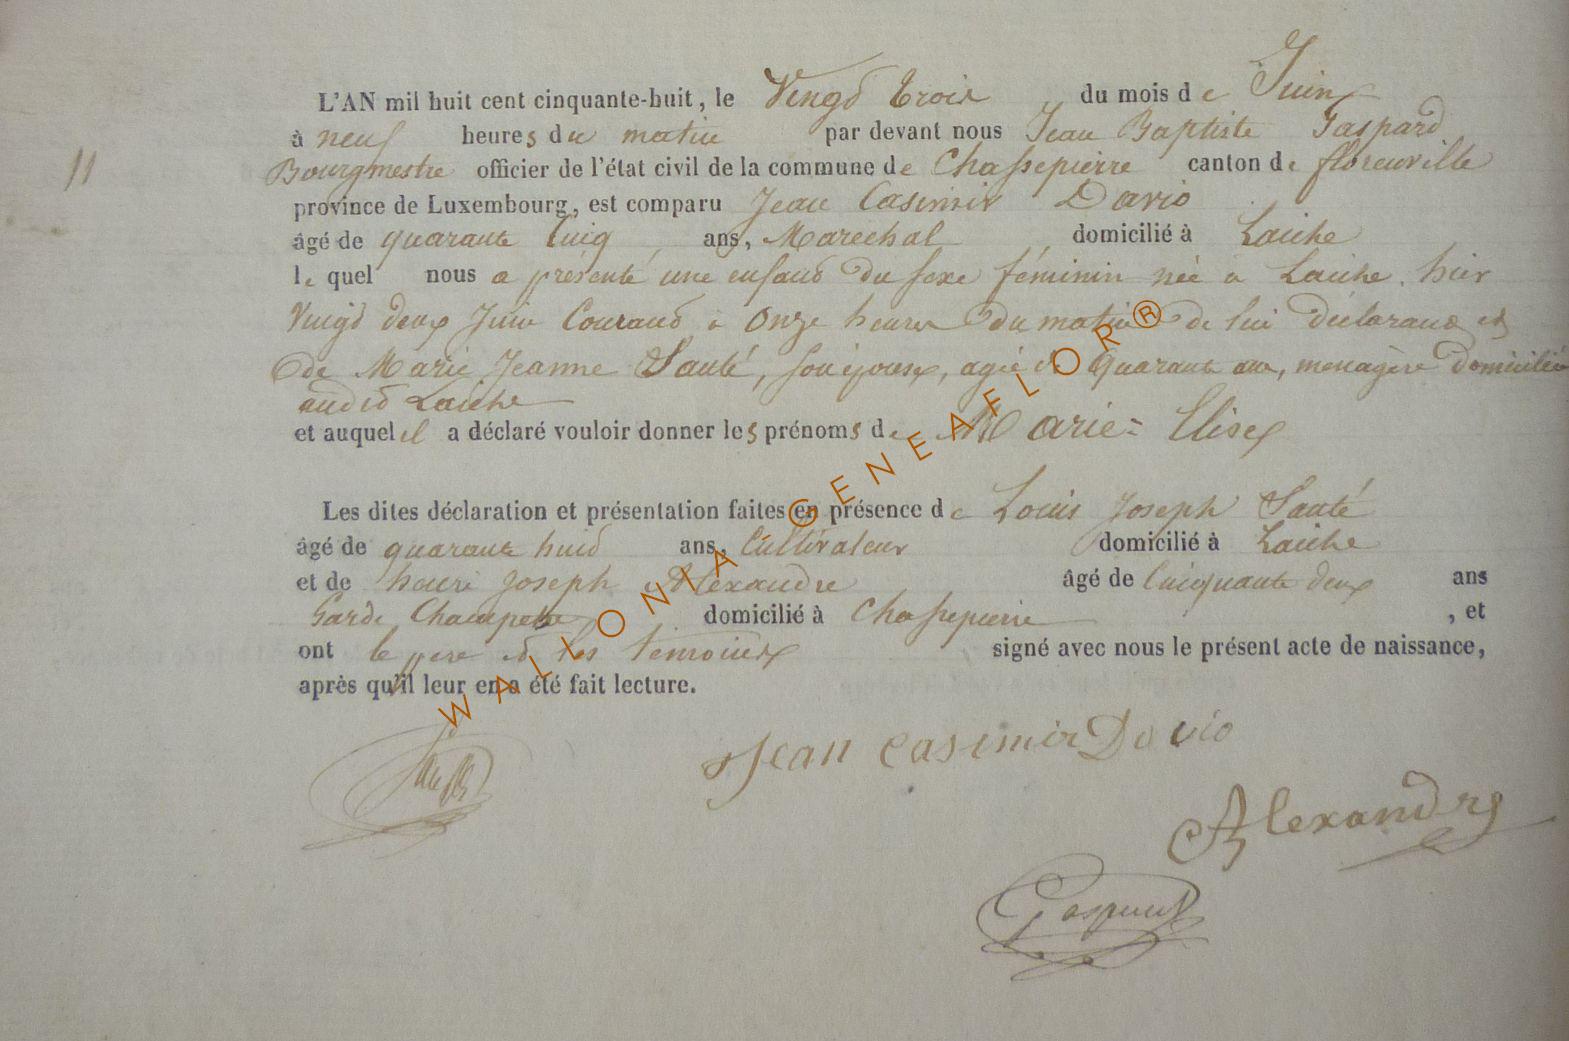 L'AN mil huit cent cinquante-huit, le Vingd trois du mois de Juin
à neuf heures du matin par devant nous Jean Baptiste Gaspard
11
Bourgmestre officier de l'état civil de la commune de Chassepierre canton de florenville
province de Luxembourg, est comparu Jean Casimir Davio
âgé de quarante Cinq ans, Marechal domicilié à Laiche
le quel nous a présenté une enfand du sexe féminin née à Laiche, hier
Vingd deux Juin Courand à Onze heures du matin de lui déclarand et
de Marie Jeanne Santé, son épouse, agée de quarante ans, menagère domiciliée
audid Laiche
et auquel il a déclaré vouloir donner les prénoms de Marie-Elise
Les dites déclaration et présentation faites en présence de Louis Joseph Santé
âgé de quarante huid ans, Cultivateur domicilié à Laiche
et de henri Joseph Alexandre âgé de Cinquante deux ans
Garde Champetre domicilié à Chassepierre , et
ont le pere ed les temoins signé avec nous le présent acte de naissance,
après qu'il leur en a été fait lecture.
Jean Casimir Davio
Alexandre
Gaspard
WALLONIA GENEAFLOR®